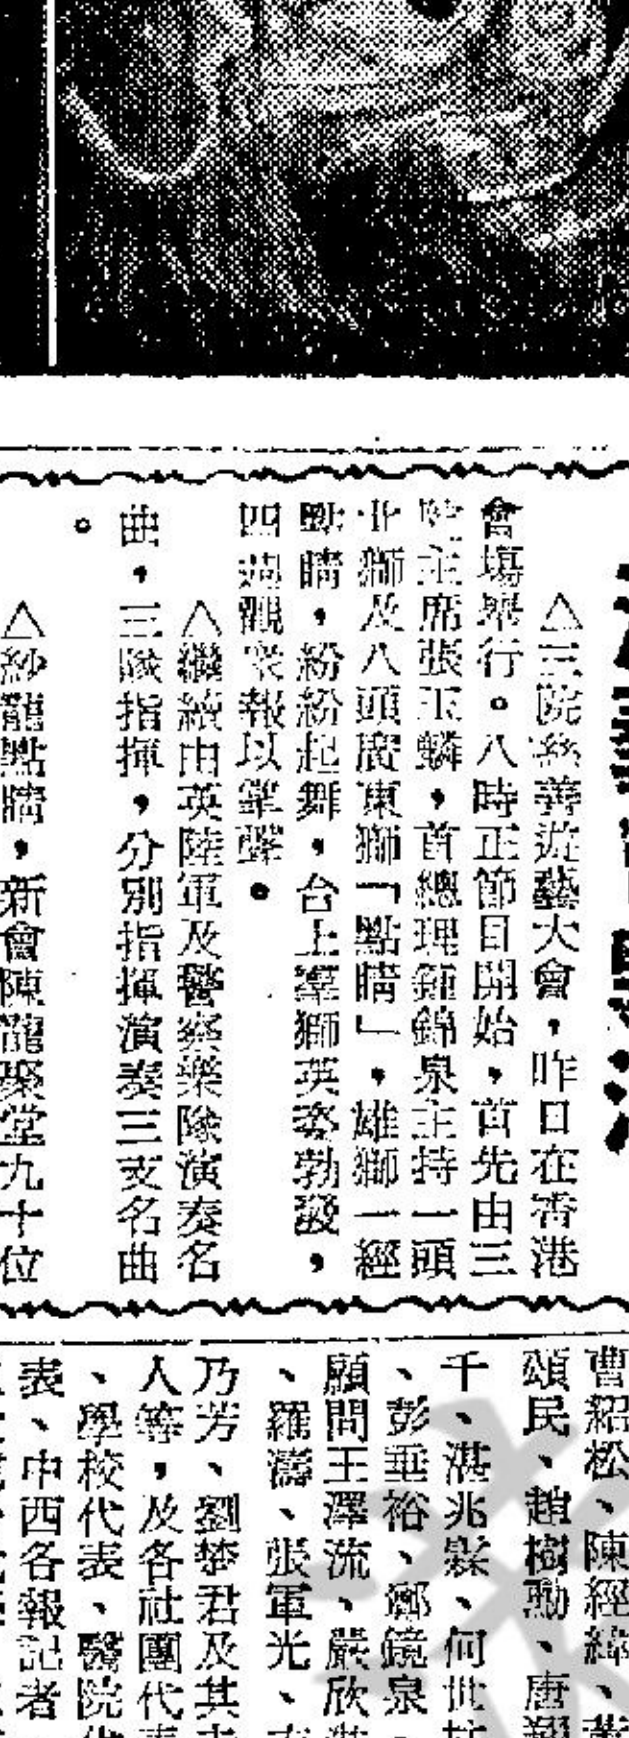 △三院慈善遊藝大會，昨日在香港
會場舉行。八時正節目開始，首先由三
院主席張玉麟，首總理鍾錦泉主持一頭
北獅及八頭廣東獅「點睛」，雄獅一經
點睛，紛紛起舞，台上羣獅英姿勃發，
四週觀衆報以掌聲。
△繼續由英陸軍及警察樂隊演奏名
曲，三隊指揮，分別指揮演奏三支名曲
。
△紗龍點睛，新會陳龍聚堂九十位
曹紹松、陳經緯、黃
頌民、趙樹勳、唐翔
千、湛兆霖、何世
、彭垂裕、鄭鏡泉、
顧問王澤流、嚴欣
、羅濤、張軍光、
乃芳、劉黎君及其
人等，及各社團代表
、學校代表、醫院代
表、中西各報記者